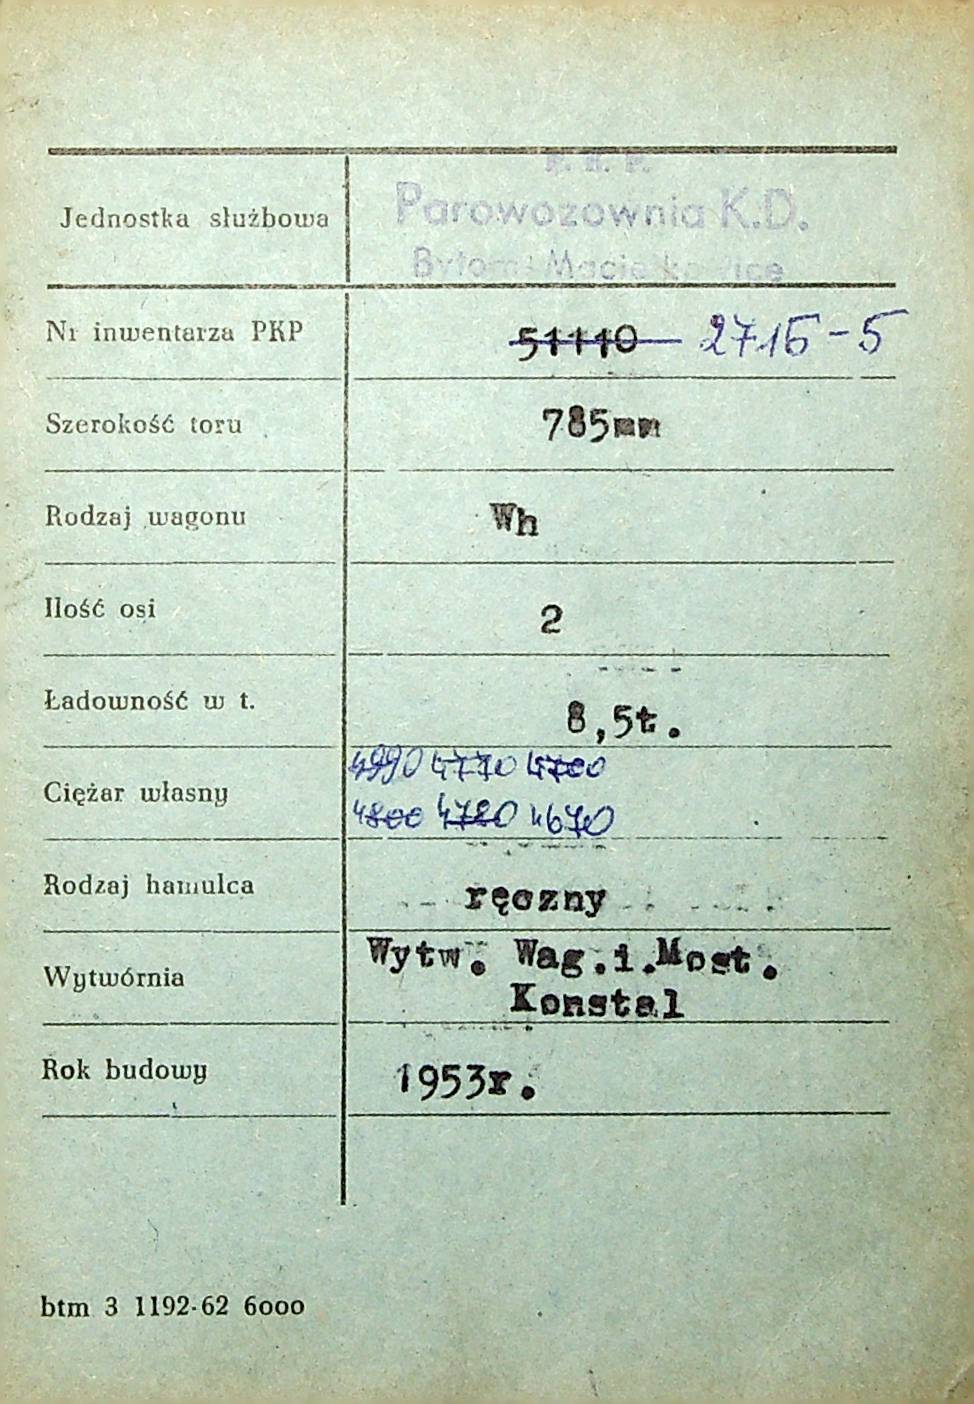 Jednostka służbowa
P. K. P.
Parowozownia K.D.
Bytom-Maciejkowice
Nr inwentarza PKP 51110 2715-5
Szerokość toru 785mm
Rodzaj wagonu Wh
Ilość osi 2
Ładowność w t. 8,5t.
Ciężar własny 4990 4770 4700
4800 4780 4670
Rodzaj hamulca ręczny
Wytwórnia Wytw. Wag.i.Most.
Konstal
Rok budowy 1953r.
btm 3 1192-62 6000